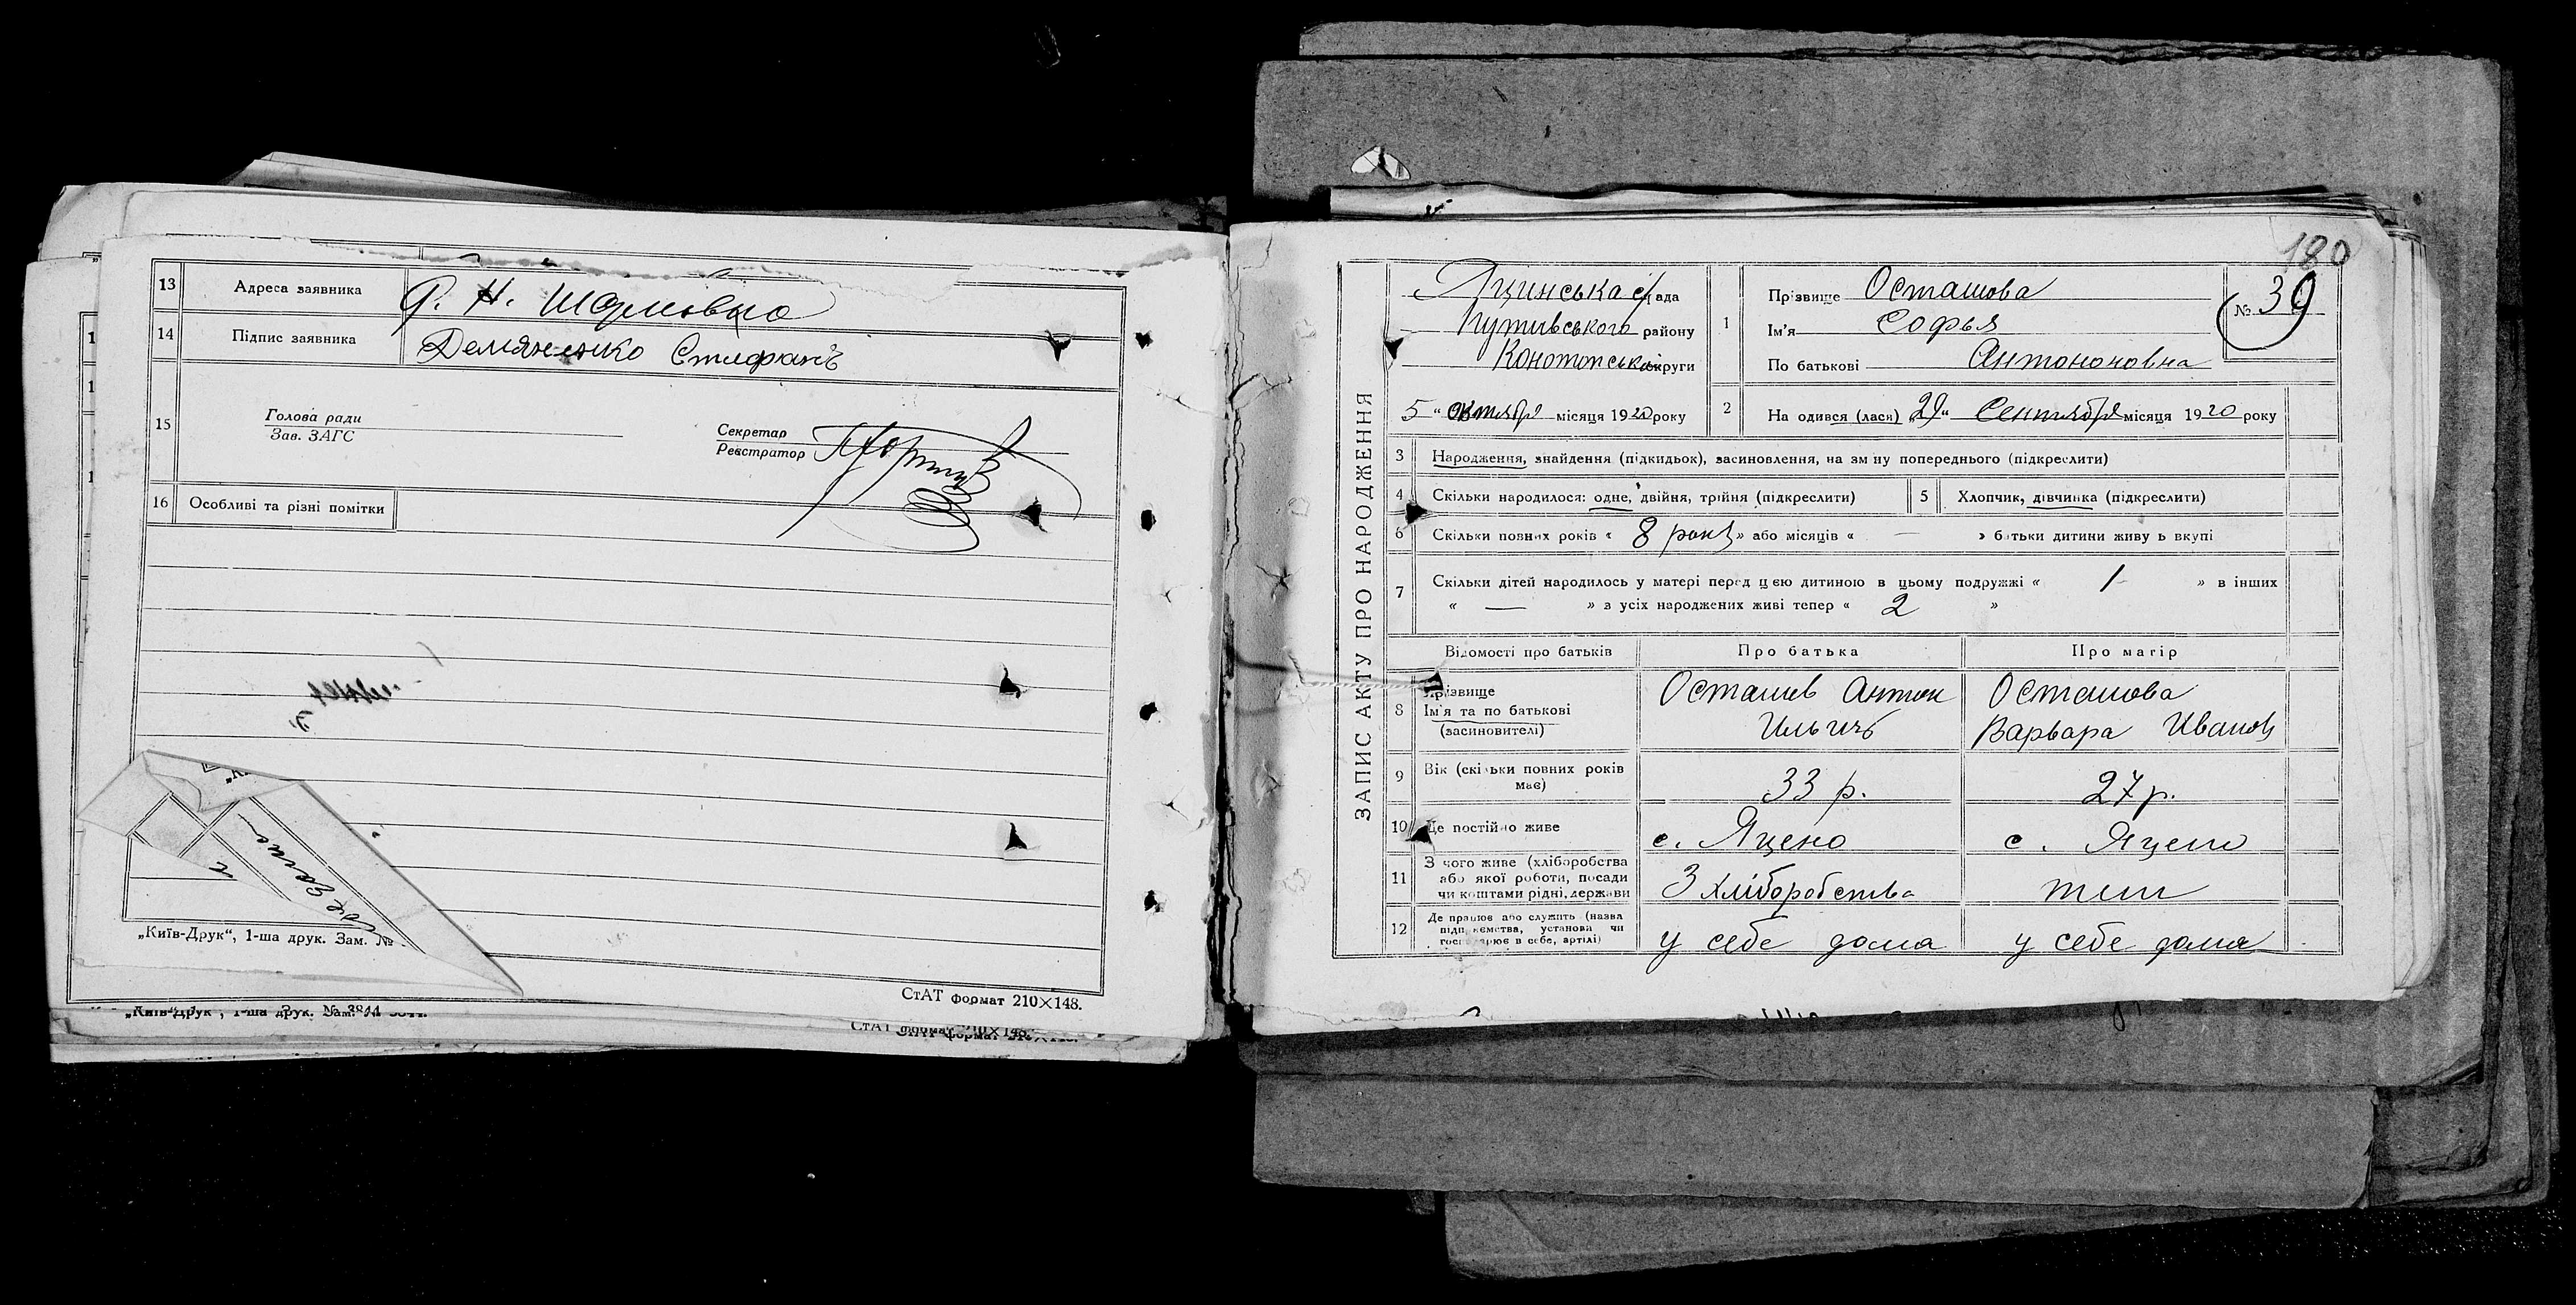 13 Адреса заявника
14 Підпис заявника Демяненко Стефанъ
15 Голова ради
Зав. ЗАГС
Секретар
Реєстратор
16 Особливі та різні помітки
„Київ-Друк“, 1-ша друк. Зам. №
СтАТ формат 210×148.
„Київ-Друк“, 1-ша друк. Зам. № 3844.
180
ЗАПИС АКТУ ПРО НАРОДЖЕННЯ
Яцинська с/рада
Путивського району
Конотопської округи
5 „ октября місяця 1920 року
1 Прізвище Осташова
Ім'я Софья
По батькові Антоновна
№ 39
2 На одився (лася) „29“ Сентября місяця 1920 року
3 Народження, знайдення (підкидьок), засиновлення, на зміну попереднього (підкреслити)
4 Скільки народилося: одне, двійня, трійня (підкреслити)
5 Хлопчик, дівчинка (підкреслити)
6 Скільки повних років « 8 років » або місяців « — » батьки дитини живуть вкупі
7 Скільки дітей народилось у матері перед цією дитиною в цьому подружжі « 1 » в інших
« — » з усіх народжених живі тепер « 2 »
Відомості про батьків Про батька Про матір
8 Прізвище
Ім'я та по батькові
(засиновителі)
Осташев Антон
Ильичъ
Осташова
Варвара Иванов
9 Вік (скільки повних років
має)
33 р. 27 р.
10 Де постійно живе с. Яцено с. Яцено
11 З чого живе (хліборобства
або якої роботи, посади
чи коштами рідні, держави
З хліборобства
12 Де працює або служить (назва
підприємства, установи чи
господарює в себе, артілі)
у себе дома у себе дома